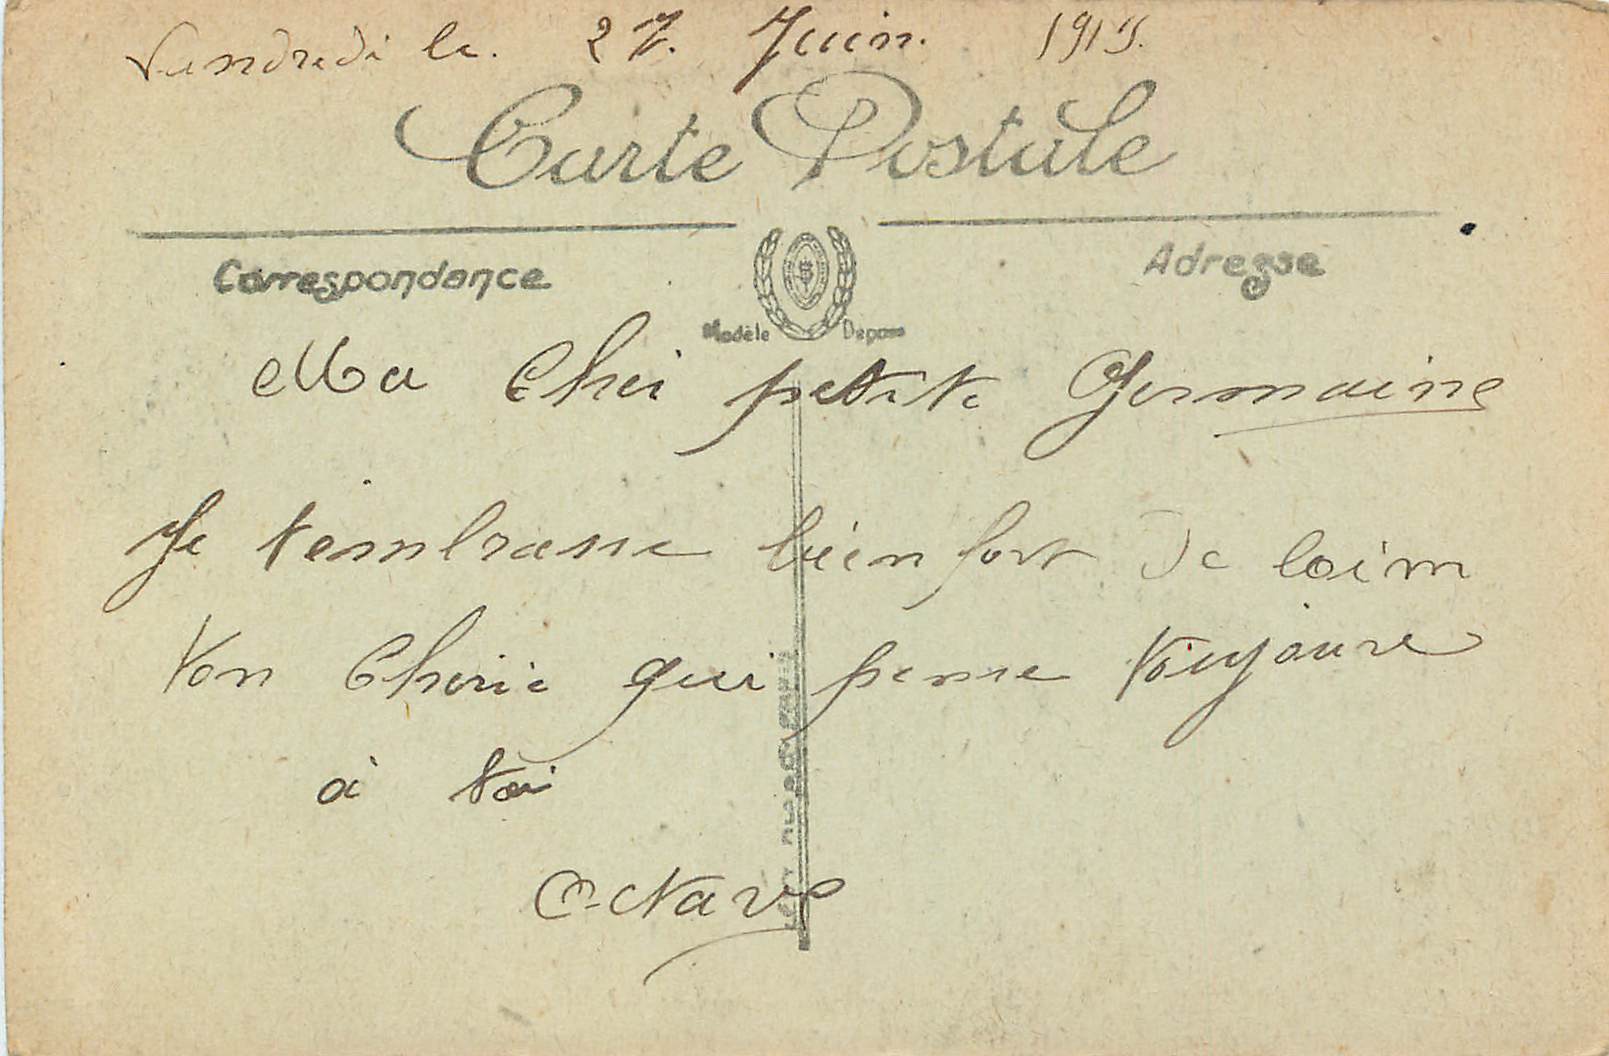 Vendredi le. 27. Juin.
Carte Postale
Correspondance
Adresse
Modèle Déposé
Ma Cher petite Germaine
Je t'embrasse bien fort de loin
Ton Chérie qui pense toujours
à toi
Octave